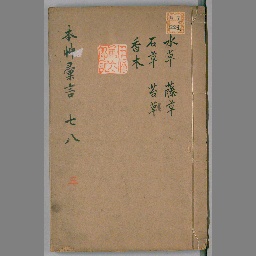 水草 藤草
石草 苔草
香木
本艸彙言 七八